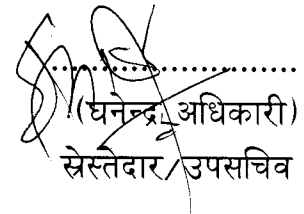 (घनेन्द्र अधिकारी)
स्रेस्तेदार/उपसचिव